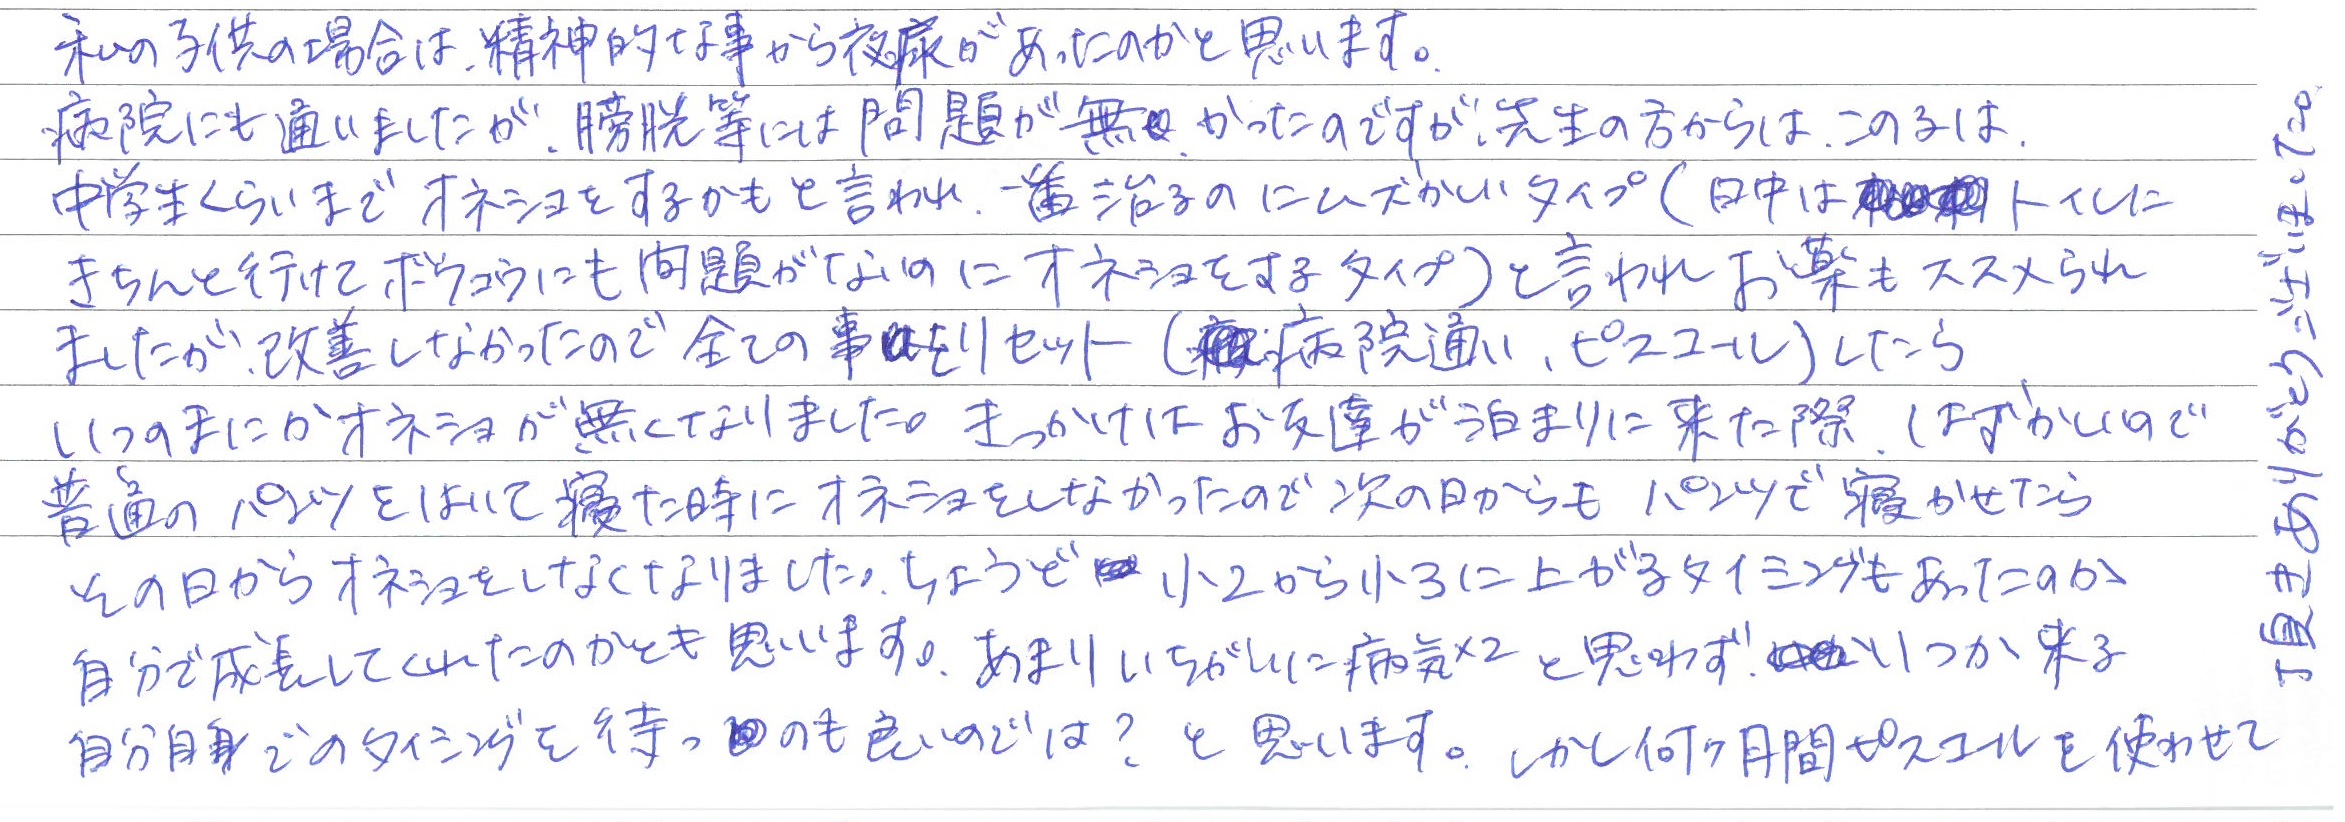 私の子供の場合は、精神的な事から夜尿があったのかと思います。
病院にも通いましたが、膀胱等には問題が無かったのですが、先生の方からは、この子は、
中学生くらいまでオネショをするかもと言われ、一番治るのにムズかしいタイプ(日中はトイレに
きちんと行けてボウコウにも問題がないのにオネショをするタイプ)と言われお薬もススメられ
ましたが、改善しなかったので全ての事をリセット(病院通い、ピスコール)したら
いつのまにかオネショが無くなりました。きっかけはお友達が泊まりに来た際、はずかしいので
普通のパンツをはいて寝た時にオネショをしなかったので次の日からもパンツで寝かせたら
その日からオネショをしなくなりました。ちょうど小2から小3に上がるタイミングもあったのか
自分で成長してくれたのかとも思います。あまりいちがいに病気×2と思わず、いつか来る
自分自身でのタイミングを待つのも良いのでは?と思います。しかし何ヶ月間ピスコールを使わせて
頂きありがとうございまして。